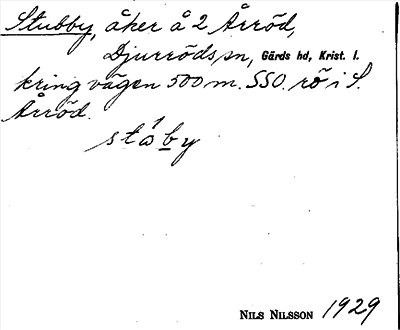 Stubby, åker å 2 Årröd,
Djurröds sn, Gärds hd, Krist. l.
kring vägen 500 m. SSO. rö i S.
Årröd.
NILS NILSSON 1929